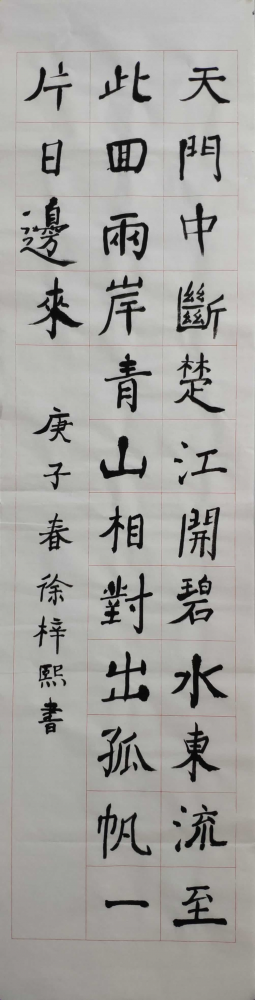 天門中斷楚江開碧水東流至
此回兩岸青山相對出孤帆一
片日邊來
庚子春徐梓熙書